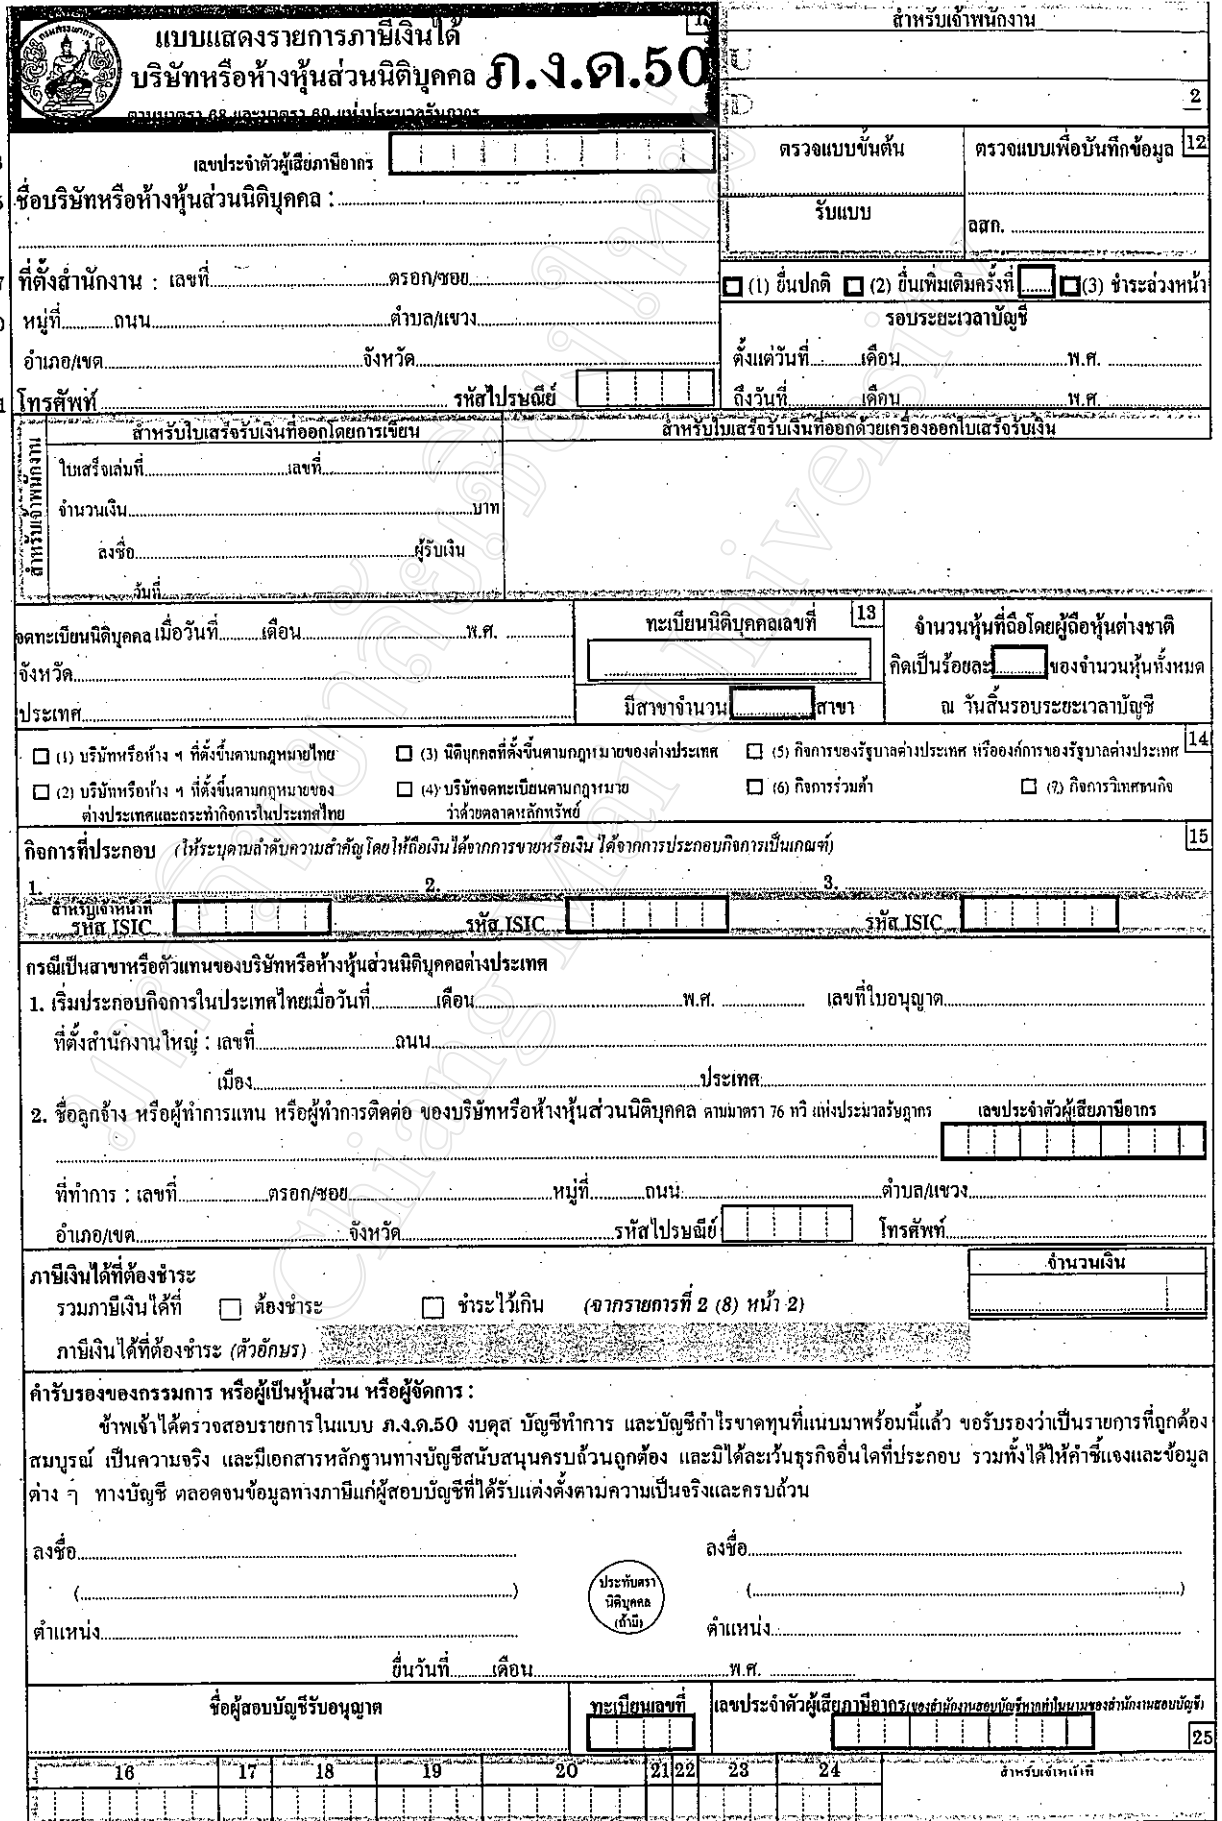 แบบแสดงรายการภาษีเงินได้
บริษัทหรือห้างหุ้นส่วนนิติบุคคล ภ.ง.ด.50
ตามมาตรา 68 และมาตรา 69 แห่งประมวลรัษฎากร
สำหรับเจ้าพนักงาน
U
D
2
เลขประจำตัวผู้เสียภาษีอากร
ชื่อบริษัทหรือห้างหุ้นส่วนนิติบุคคล :
ตรวจแบบขั้นต้น
ตรวจแบบเพื่อบันทึกข้อมูล 12
รับแบบ
ลสก.
ที่ตั้งสำนักงาน : เลขที่ ตรอก/ซอย
หมู่ที่ ถนน ตำบล/แขวง
อำเภอ/เขต จังหวัด
โทรศัพท์ รหัสไปรษณีย์
(1) ยื่นปกติ (2) ยื่นเพิ่มเติมครั้งที่ (3) ชำระล่วงหน้า
รอบระยะเวลาบัญชี
ตั้งแต่วันที่ เดือน พ.ศ.
ถึงวันที่ เดือน พ.ศ.
สำหรับเจ้าพนักงาน
สำหรับใบเสร็จรับเงินที่ออกโดยการเขียน
ใบเสร็จเล่มที่ เลขที่
จำนวนเงิน บาท
ลงชื่อ ผู้รับเงิน
วันที่
สำหรับใบเสร็จรับเงินที่ออกด้วยเครื่องออกใบเสร็จรับเงิน
จดทะเบียนนิติบุคคลเมื่อวันที่ เดือน พ.ศ.
จังหวัด
ประเทศ
ทะเบียนนิติบุคคลเลขที่ 13
มีสาขาจำนวน สาขา
จำนวนหุ้นที่ถือโดยผู้ถือหุ้นต่างชาติ
คิดเป็นร้อยละ ของจำนวนหุ้นทั้งหมด
ณ วันสิ้นรอบระยะเวลาบัญชี
14
(1) บริษัทหรือห้าง ฯ ที่ตั้งขึ้นตามกฎหมายไทย (3) นิติบุคคลที่ตั้งขึ้นตามกฎหมายของต่างประเทศ (5) กิจการของรัฐบาลต่างประเทศ หรือองค์การของรัฐบาลต่างประเทศ
(2) บริษัทหรือห้าง ฯ ที่ตั้งขึ้นตามกฎหมายของ (4) บริษัทจดทะเบียนตามกฎหมาย (6) กิจการร่วมค้า (7) กิจการวิเทศธนกิจ
ต่างประเทศและกระทำกิจการในประเทศไทย ว่าด้วยตลาดหลักทรัพย์
กิจการที่ประกอบ (ให้ระบุตามลำดับความสำคัญโดยให้ถือเงินได้จากการขายหรือเงินได้จากการประกอบกิจการเป็นเกณฑ์) 15
1. 2. 3.
สำหรับเจ้าหน้าที่
รหัส ISIC รหัส ISIC รหัส ISIC
กรณีเป็นสาขาหรือตัวแทนของบริษัทหรือห้างหุ้นส่วนนิติบุคคลต่างประเทศ
1. เริ่มประกอบกิจการในประเทศไทยเมื่อวันที่ เดือน พ.ศ. เลขที่ใบอนุญาต
ที่ตั้งสำนักงานใหญ่ : เลขที่ ถนน
เมือง ประเทศ
2. ชื่อลูกจ้าง หรือผู้ทำการแทน หรือผู้ทำการติดต่อ ของบริษัทหรือห้างหุ้นส่วนนิติบุคคล ตามมาตรา 76 ทวิ แห่งประมวลรัษฎากร เลขประจำตัวผู้เสียภาษีอากร
ที่ทำการ : เลขที่ ตรอก/ซอย หมู่ที่ ถนน ตำบล/แขวง
อำเภอ/เขต จังหวัด รหัสไปรษณีย์ โทรศัพท์
ภาษีเงินได้ที่ต้องชำระ จำนวนเงิน
รวมภาษีเงินได้ที่ ต้องชำระ ชำระไว้เกิน (จากรายการที่ 2 (8) หน้า 2)
ภาษีเงินได้ที่ต้องชำระ (ตัวอักษร)
คำรับรองของกรรมการ หรือผู้เป็นหุ้นส่วน หรือผู้จัดการ :
ข้าพเจ้าได้ตรวจสอบรายการในแบบ ภ.ง.ด.50 งบดุล บัญชีทำการ และบัญชีกำไรขาดทุนที่แนบมาพร้อมนี้แล้ว ขอรับรองว่าเป็นรายการที่ถูกต้อง
สมบูรณ์ เป็นความจริง และมีเอกสารหลักฐานทางบัญชีสนับสนุนครบถ้วนถูกต้อง และมิได้ละเว้นธุรกิจอื่นใดที่ประกอบ รวมทั้งได้ให้คำชี้แจงและข้อมูล
ต่าง ๆ ทางบัญชี ตลอดจนข้อมูลทางภาษีแก่ผู้สอบบัญชีที่ได้รับแต่งตั้งตามความเป็นจริงและครบถ้วน
ลงชื่อ ลงชื่อ
( ) ( )
ประทับตรา
นิติบุคคล
(ถ้ามี)
ตำแหน่ง ตำแหน่ง
ยื่นวันที่ เดือน พ.ศ.
ชื่อผู้สอบบัญชีรับอนุญาต ทะเบียนเลขที่ เลขประจำตัวผู้เสียภาษีอากร(ของสำนักงานสอบบัญชีหากทำในนามของสำนักงานสอบบัญชี)
25
16 17 18 19 20 21 22 23 24 สำหรับเจ้าหน้าที่
มหาวิทยาลัยเชียงใหม่
Chiang Mai University